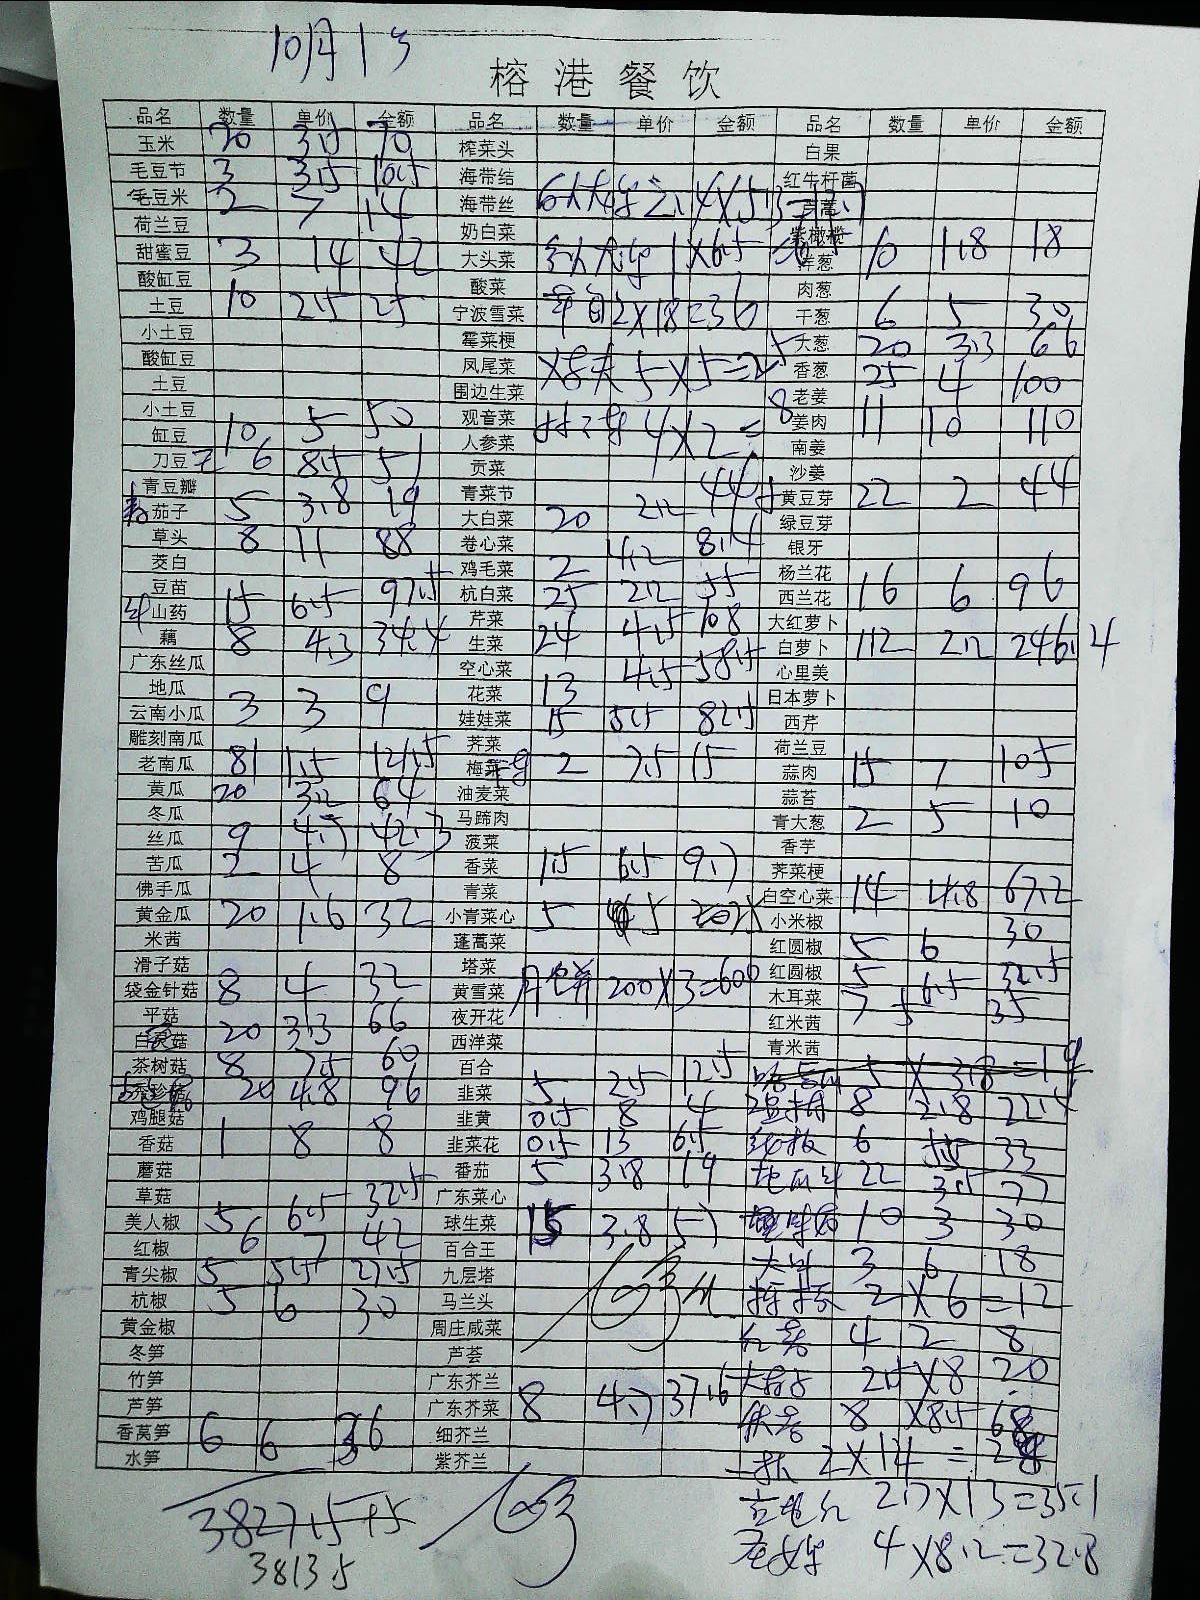 10月1号
榕港餐饮
品名 数量 单价 金额 品名 数量 单价 金额 品名 数量 单价 金额
玉米 20 3.5 70 榨菜头 白果
毛豆节 3 3.5 10.5 海带结 红牛杆菌
毛豆米 2 7 14 海带丝
荷兰豆 奶白菜 紫橄榄
甜蜜豆 3 14 42 大头菜 1×6.5 洋葱 10 1.8 18
酸缸豆 酸菜 肉葱
土豆 10 2.5 25 宁波雪菜 2×18=36 干葱 6 5 30
小土豆 霉菜梗 大葱 20 3.3 66
酸缸豆 凤尾菜 5×5=25 香葱 25 4 100
土豆 围边生菜 老姜
小土豆 观音菜 4×2=8 姜肉 11 10 110
缸豆 10 5 50 人参菜 南姜
刀豆 6 8.5 51 贡菜 沙姜
青豆瓣 青菜节 黄豆芽 22 2 44
茄子 5 3.8 19 大白菜 20 2.2 44 绿豆芽
草头 8 11 88 卷心菜 银牙
茭白 鸡毛菜 2 4.2 8.4 杨兰花
豆苗 杭白菜 25 2.2 55 西兰花 16 6 96
山药 15 6.5 97.5 芹菜 大红萝卜
藕 8 4.3 34.4 生菜 24 4.5 108 白萝卜 112 2.2 246.4
广东丝瓜 空心菜 心里美
地瓜 花菜 13 4.5 58.5 日本萝卜
云南小瓜 3 3 9 娃娃菜 15 5.5 82.5 西芹
雕刻南瓜 荠菜 荷兰豆
老南瓜 81 1.5 121.5 梅菜 2 7.5 15 蒜肉 15 7 105
黄瓜 20 3.2 64 油麦菜 蒜苔
冬瓜 马蹄肉 青大葱 2 5 10
丝瓜 9 4.7 42.3 菠菜 香芋
苦瓜 2 4 8 香菜 1.5 6.5 9.7 荠菜梗
佛手瓜 青菜 白空心菜 14 4.8 67.2
黄金瓜 20 1.6 32 小青菜心 5 小米椒
米茜 蓬蒿菜 红圆椒 5 6 30
滑子菇 塔菜 红圆椒 5 6.5 32.5
袋金针菇 8 4 32 黄雪菜 月饼 200×3=600 木耳菜 7 5 35
平菇 夜开花 红米茜
白灵菇 20 3.3 66 西洋菜 青米茜
茶树菇 8 7.5 60 百合 5×3.8=19
秀珍菇 20 4.8 96 韭菜 5 2.5 12.5 8 2.8 22.4
鸡腿菇 韭黄 0.5 8 4
香菇 1 8 8 韭菜花 0.5 13 6.5 6 5.5 33
蘑菇 番茄 5 3.8 19 22 3.5 77
草菇 广东菜心
美人椒 5 6.5 32.5 球生菜 15 3.8 57 10 3 30
红椒 6 7 42 百合王 3 6 18
青尖椒 5 5.5 27.5 九层塔
杭椒 5 6 30 马兰头 2×6=12
黄金椒 周庄咸菜 红 4 2 8
冬笋 芦荟
竹笋 广东芥兰 2.5×8 20
芦笋 广东芥菜 8 4.7 37.6
香莴笋 6 6 36 细芥兰 8 ×8.5 68
水笋 紫芥兰 2×14=28
2.7×13=35.1
3827.5+5 4×8.2=32.8
3813.5